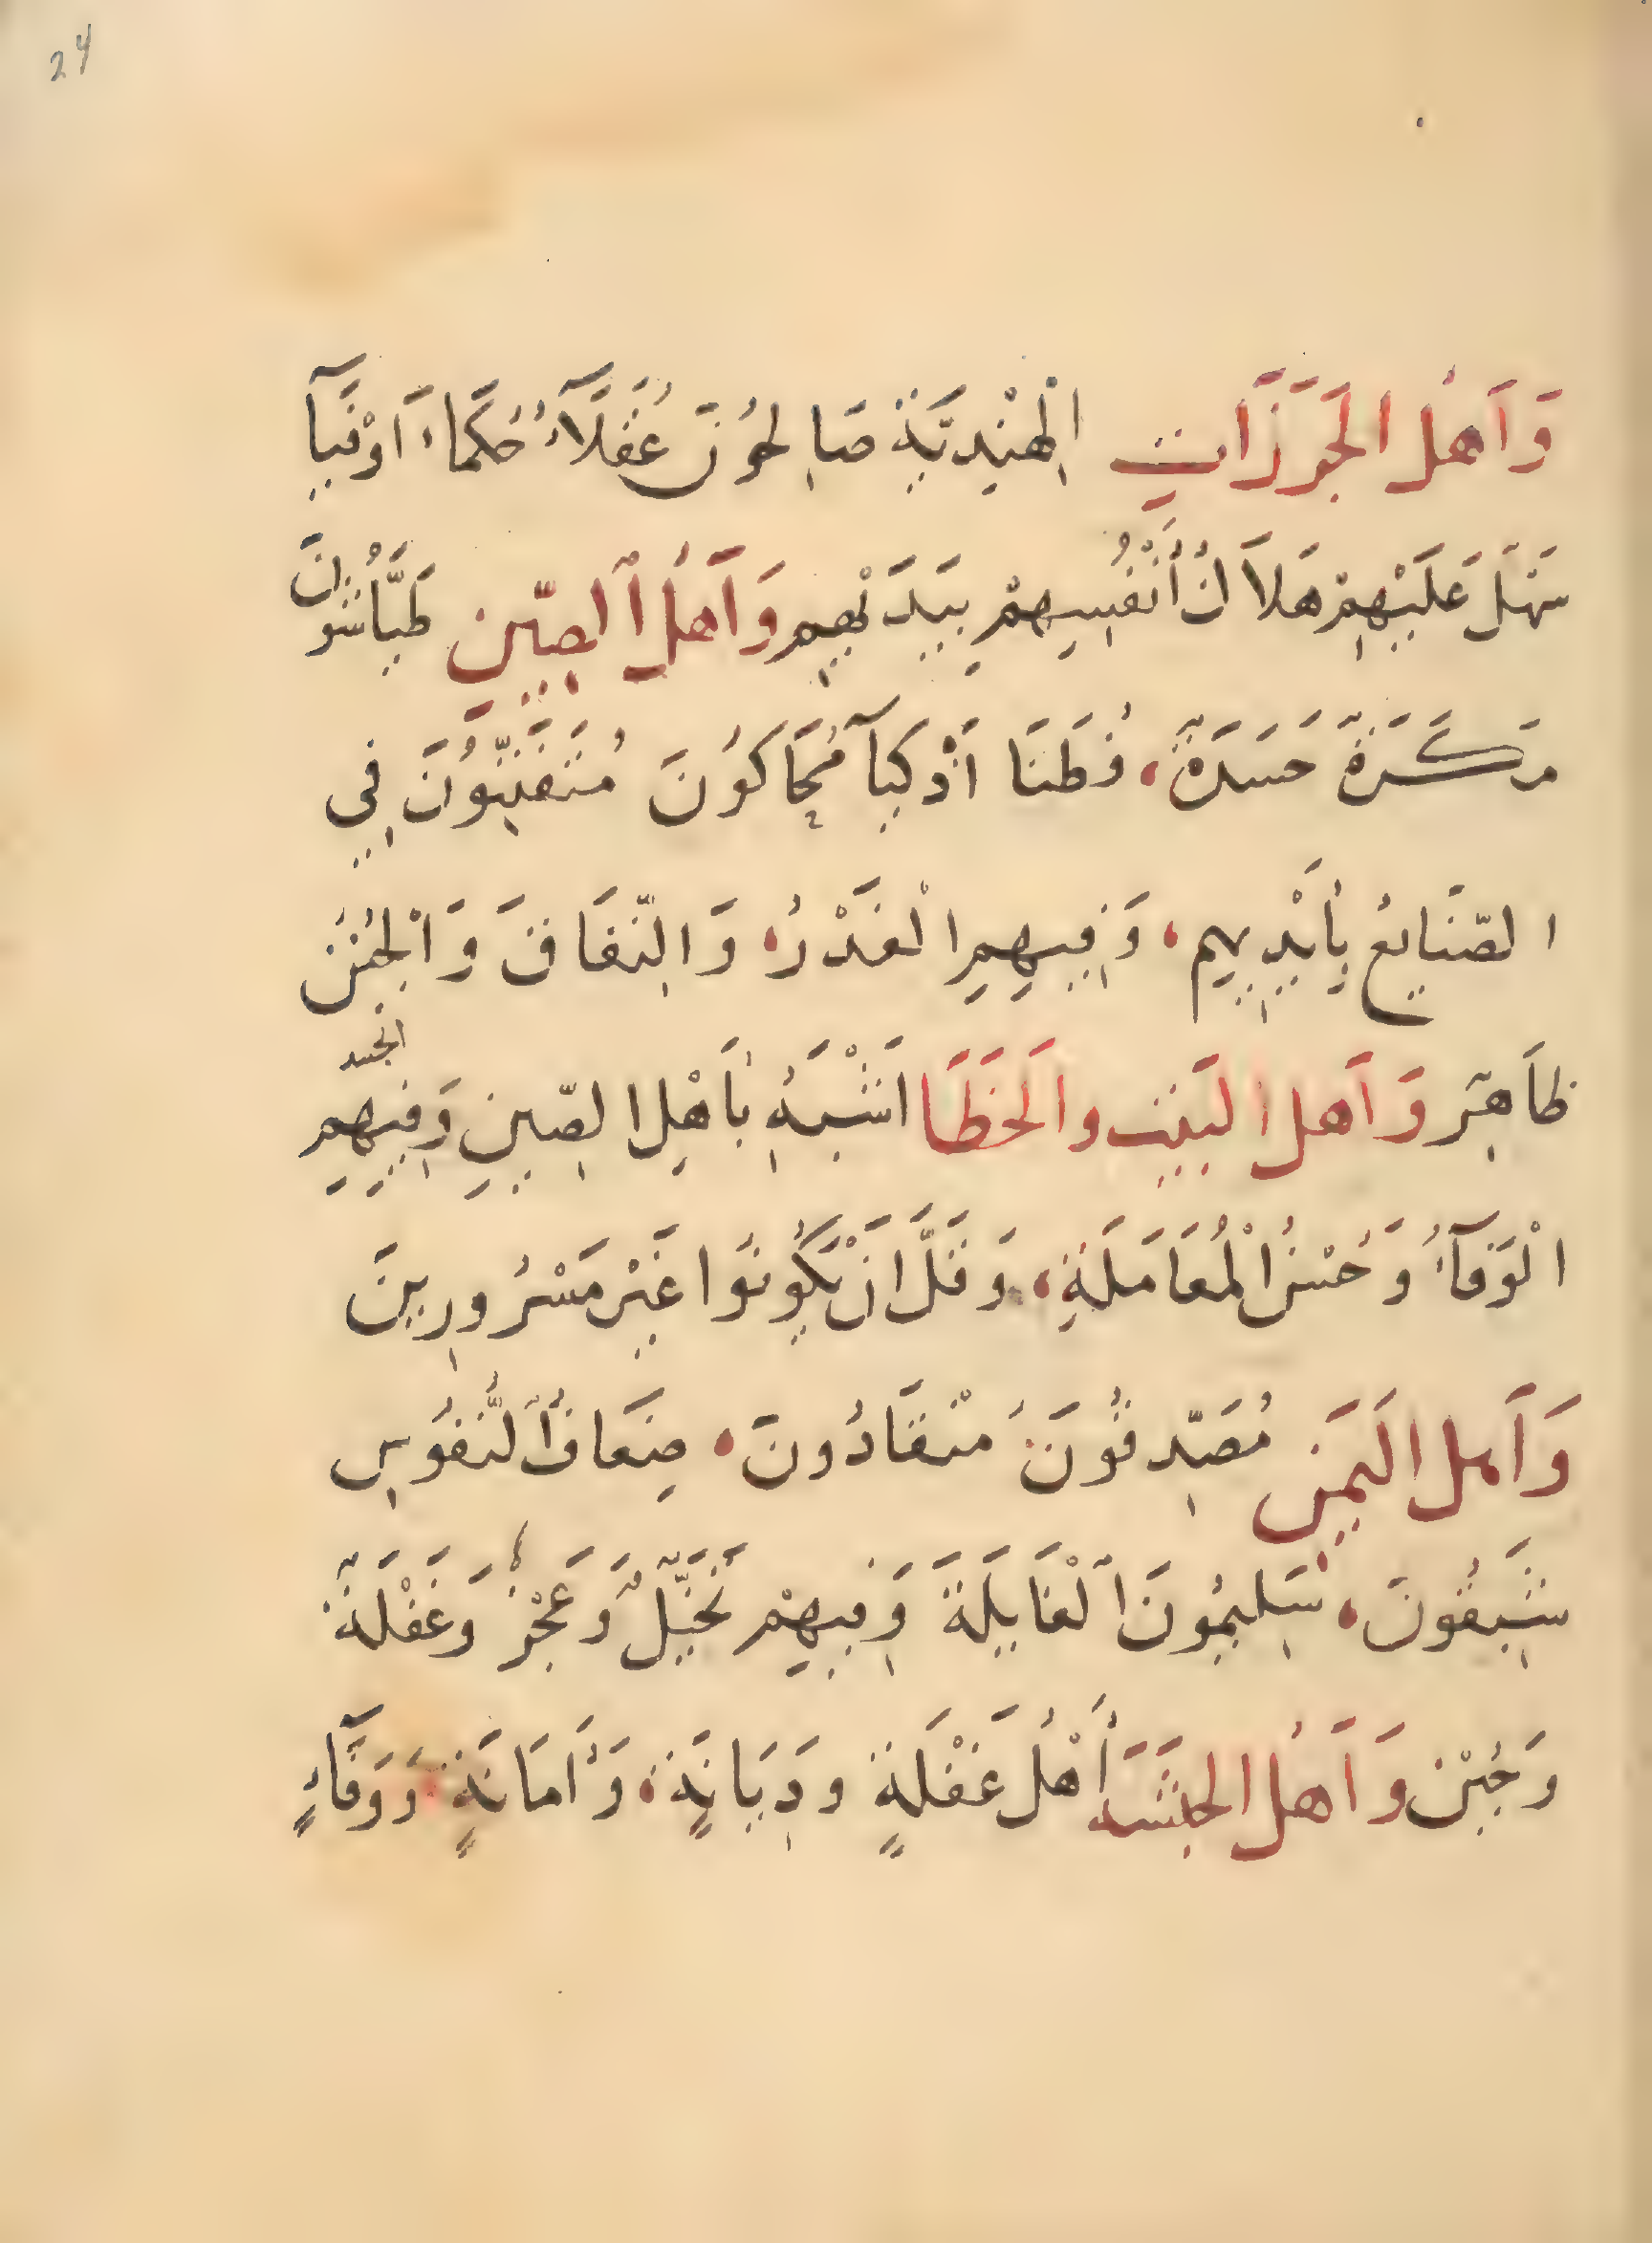 24
وَاَهْل الجَزَزَاتِ الْهِنْدِيَّة صَالِحُونَ عُقَلَآءُ حُكَمَاءَ اَوْفِيَآ
سَهْلَ عَلَيْهِمْ هَلاَ انْ أَنْفُسِهِمْ بِيَدَ نْهِيم وَاَهْل الصِّينِ طَيَّاشُونَ
مَكَرَةٌ حَسَدَةٌ، فُطَنَا اَذْكِيَآ مُحَاكُونَ مُتَفَنِّنُونَ فِي
الصَّنَايِعُ بِأَيْدِيهِم، وَفِيهِمِ الْغَدْرُ، وَالنِّفَاقَ وَالْجُبْن
ظَاهِر وَاَهل التبت والخَطَا اَشْبَهُ بأَهْلِ الصِّينِ وَفِيهِمِ
الجسد
الْوَفَآءُ وَحُسْنُ الْمُعَامَلَةِ، وَقَلَّ اَنْ يَكُونُوا غَيْر مَسْرُورِينَ
وَاَهل اليَمَنِ مُصَدِّقُونَ مُنْقَادُونَ، ضِعَافُ النُّفُوسِ
شَبِقُونَ، سَلِيمُونَ الْغَايِلَةَ وَفِيهِمْ تَخَيُّلٌ وَعَجْزٌ وَغَفْلَةٌ
وَجُبْن وَاَهْلُ الحبَشَة أَهْلُ غَفْلَةٍ ودِيَانَةٍ، وَأَمَانَةٍ، وَوَفَآءٍ